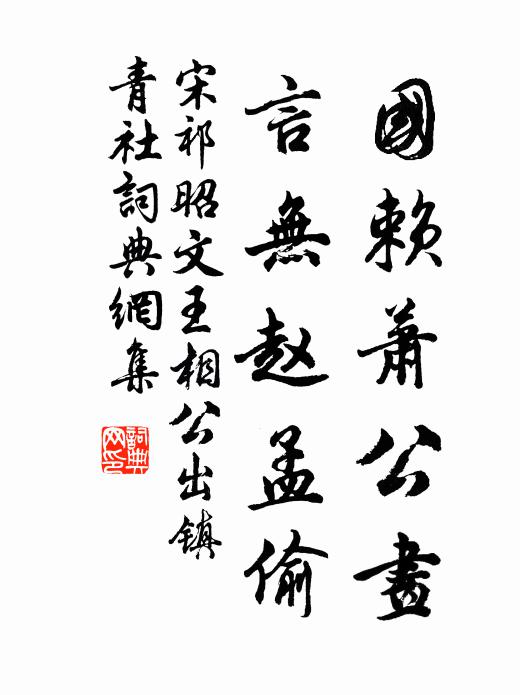 國賴蕭公畫
言無赵孟偷
宋祁昭文王相公出镇
青社詞典網集
詞典网印